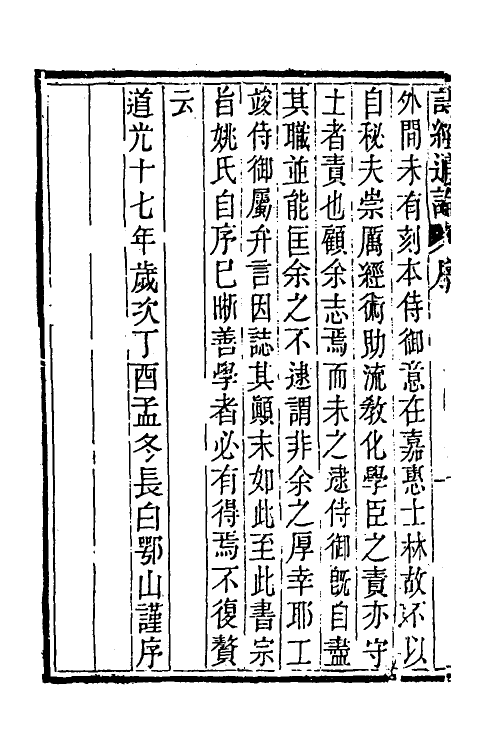 詩經通論 序
外間未有刻本侍御意在嘉惠士林故不以
自秘夫崇厲經術助流敎化學臣之責亦守
土者責也顧余志焉而未之逮侍御旣自盡
其職並能匡余之不逮謂非余之厚幸耶工
竣侍御屬弁言因誌其顚末如此至此書宗
旨姚氏自序已晰善學者必有得焉不復贅
云
道光十七年歲次丁酉孟冬長白鄂山謹序